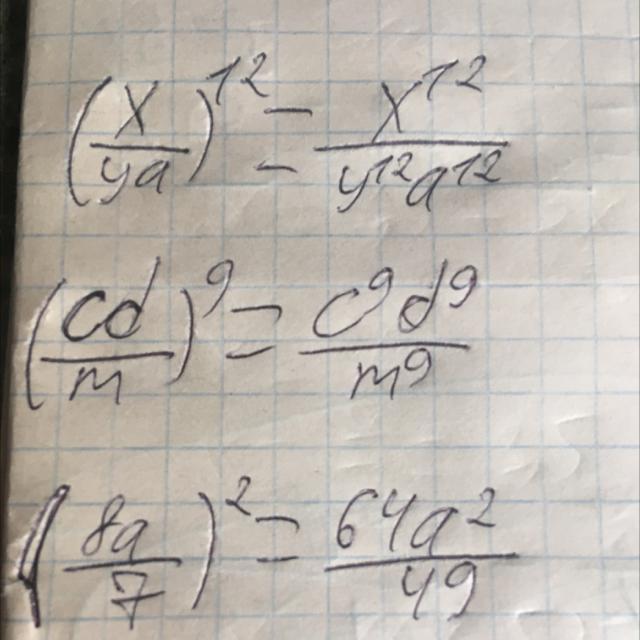 (x/ya)¹² = x¹²/y¹²a¹²
(cd/m)⁹ = c⁹d⁹/m⁹
(8a/7)² = 64a²/49